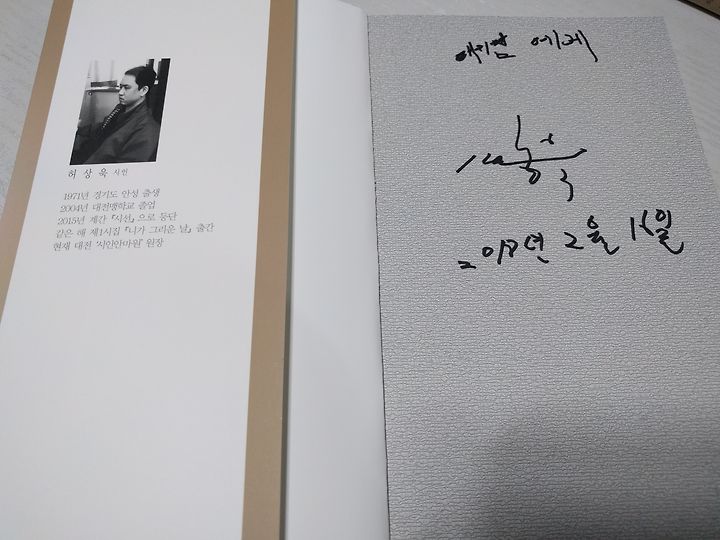 허 상 욱 시인
1971년 경기도 안성 출생
2004년 대전맹학교 졸업
2015년 계간 『시선』으로 등단
같은 해 제1시집 『니가 그리운 날』 출간
현재 대전 '시인안마원' 원장
에게
2월